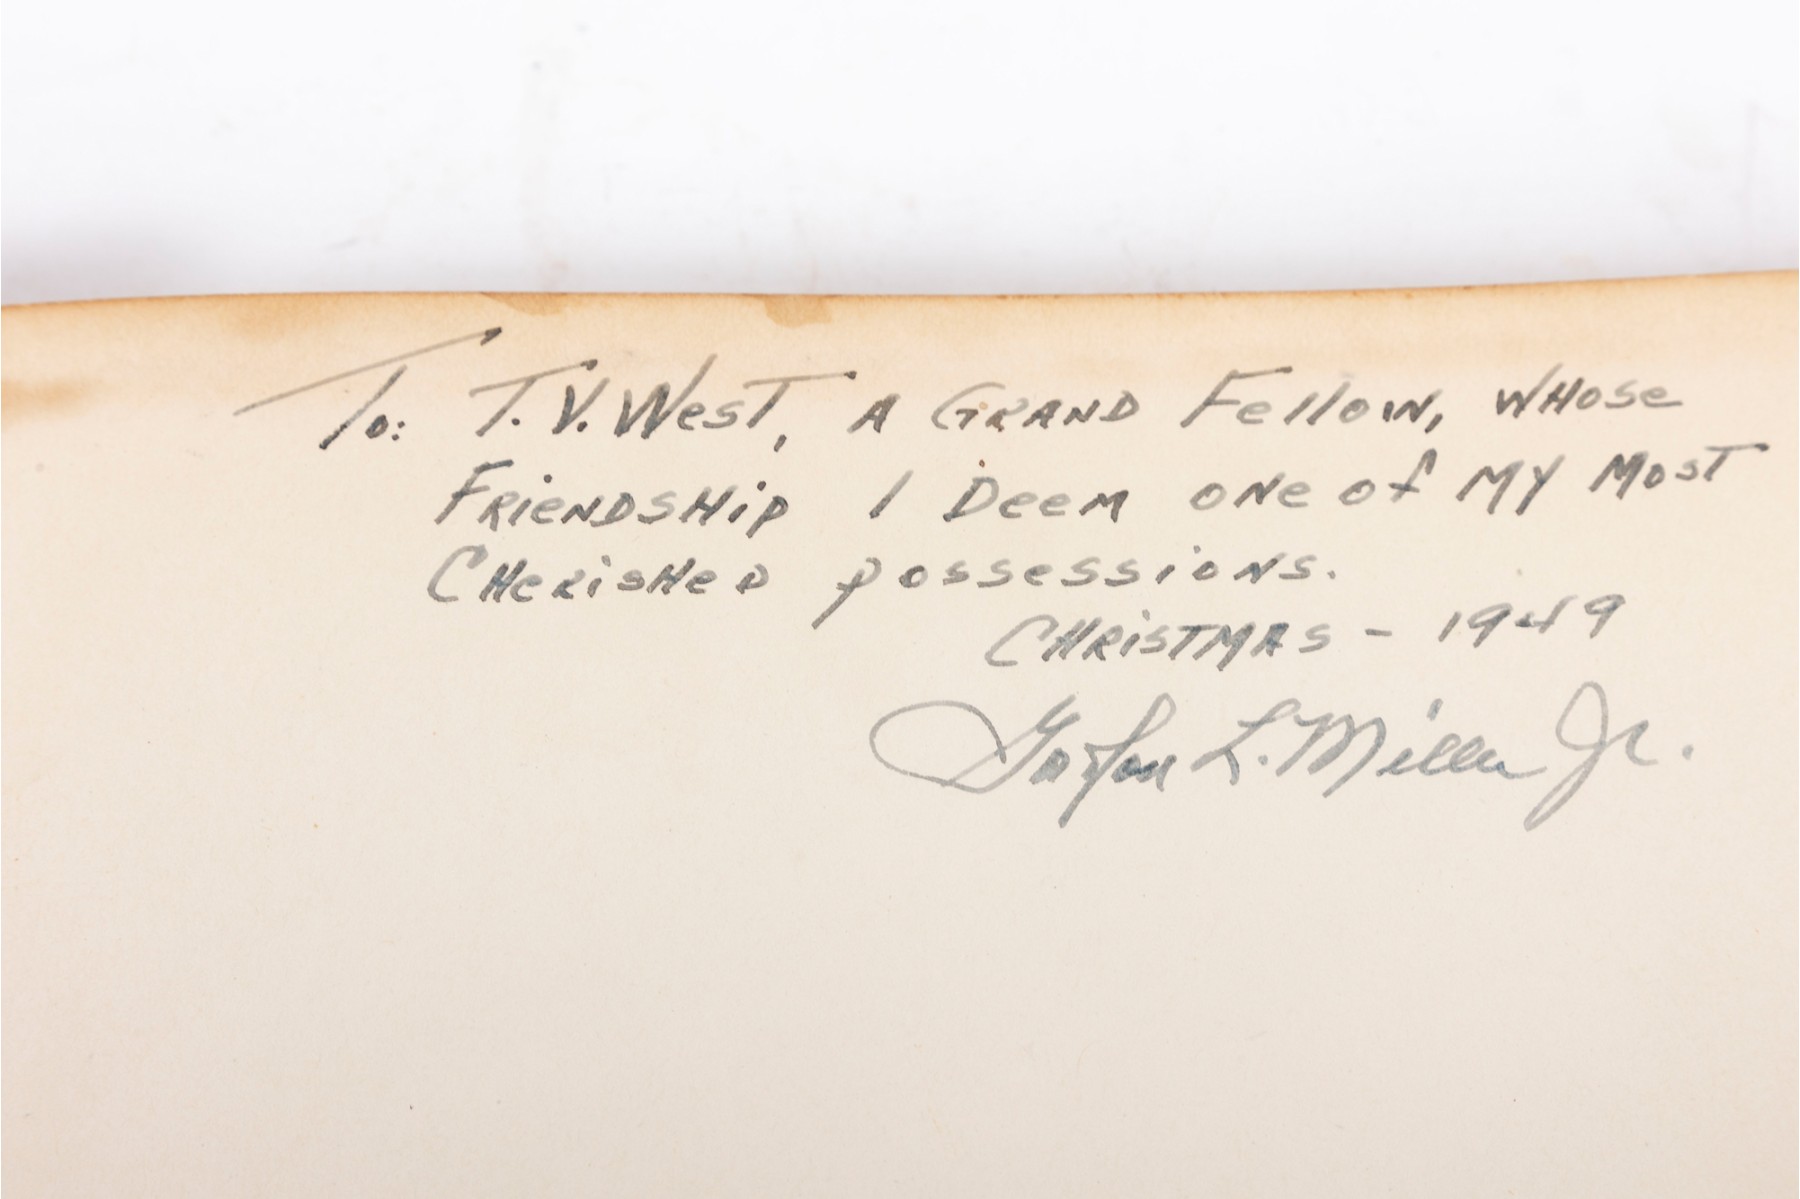 To: T.V. West, A GRAND Fellow, WHOSE
FRieNDSHiP I Deem ONe of MY MosT
CHeRisHeD possessioNs.
CHRiSTMAS - 1949
L. Miller Jr.